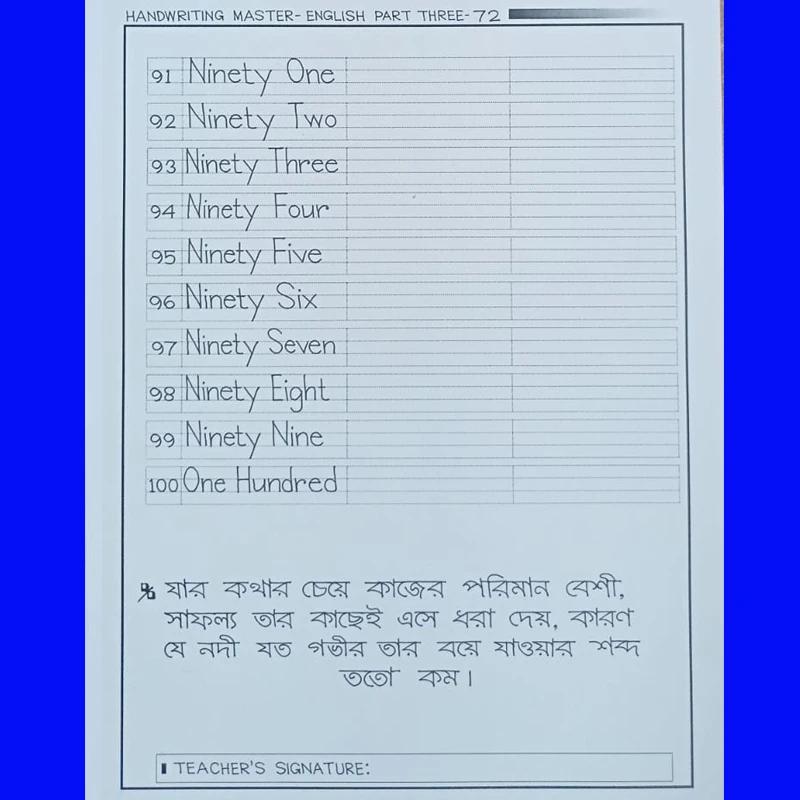 HANDWRITING MASTER- ENGLISH PART THREE- 72
91 Ninety One
92 Ninety Two
93 Ninety Three
94 Ninety Four
95 Ninety Five
96 Ninety Six
97 Ninety Seven
98 Ninety Eight
99 Ninety Nine
100 One Hundred
যার কথার চেয়ে কাজের পরিমান বেশী,
সাফল্য তার কাছেই এসে ধরা দেয়, কারণ
যে নদী যত গভীর তার বয়ে যাওয়ার শব্দ
ততো কম।
TEACHER'S SIGNATURE: